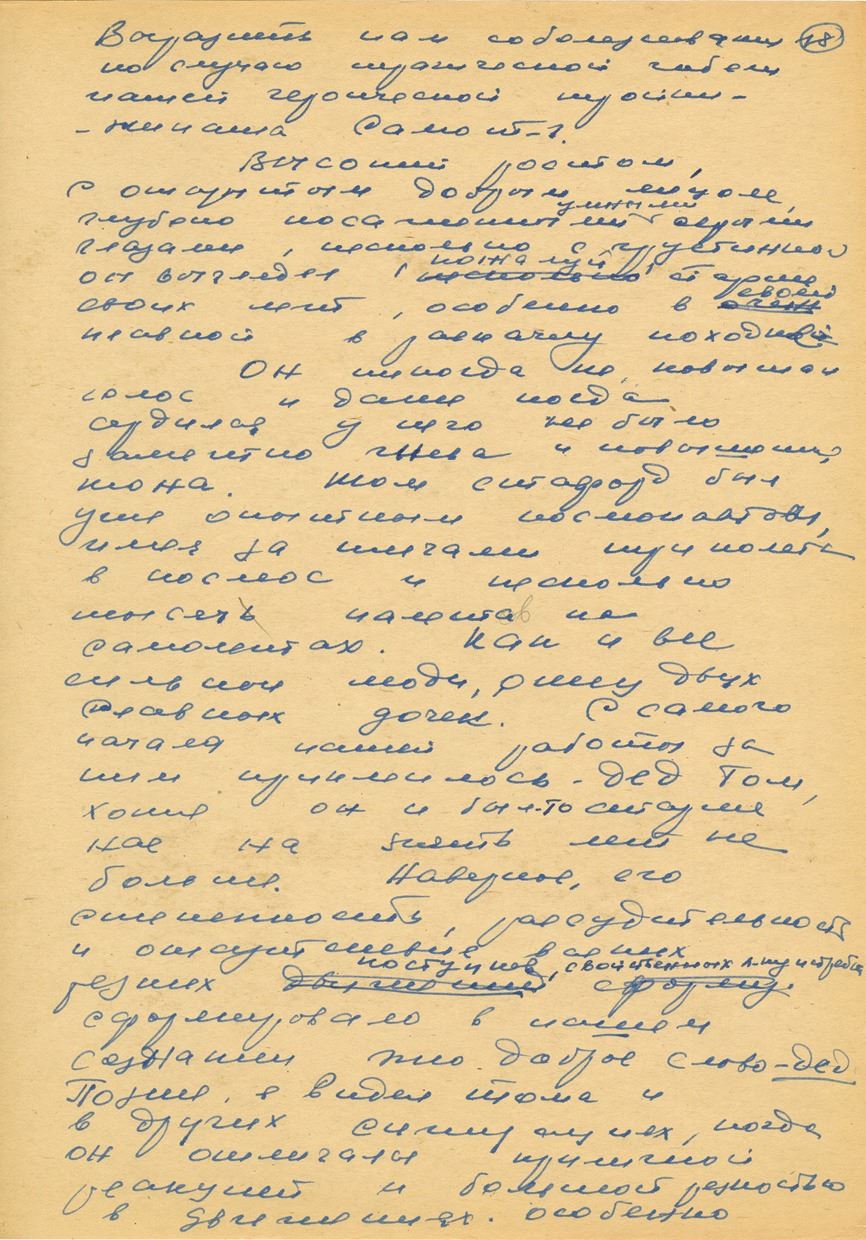 Выразить нам соболезнования 18
по случаю трагической гибели
нашей героической тройки-
-экипажа Салют-1.
Высокий ростом,
с открытым добрым лицом,
умными
глубоко посаженными серыми
глазами, несколько с грустинкой
пожалуй
он выглядел несколько старше
своей
своих лет, особенно в очень
неявной в развалку походкой
Он никогда не повышал
голос и даже когда
сердился у него не было
заметно гнева и повышения
тона. Том Стаффорд был
уже опытным космонавтом,
имея за плечами три полета
в космос и несколько
тысяч налета на
самолетах. Как и все
сильные люди, отец двух
славных дочек. С самого
начала нашей работы за
ним прикрепилось - дед Том,
хотя он и был-то старше
нас на пять лет не
более. Наверное, его
степенность, рассудительность
и отсутствие всяких
поступков, свойственных л-ку истребит
резких движений сформи
сформировало в нашем
сознании это доброе слово-дед
Позже, я видел Тома и
в других ситуациях, когда
он отличался приличной
реакцией и большой резкостью
в движениях. особенно